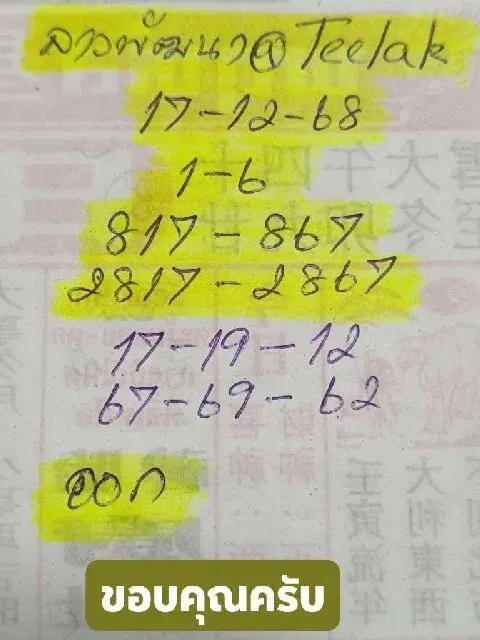 ลาวพัฒนา@Teelak
17-12-68
1-6
817-867
2817-2867
17-19-12
67-69-62
ออก
ขอบคุณครับ